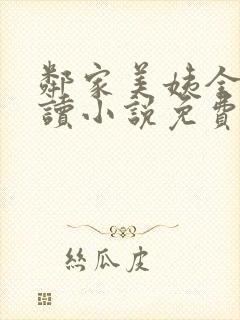 鄰家美姨全
讀小説免費
絲瓜皮